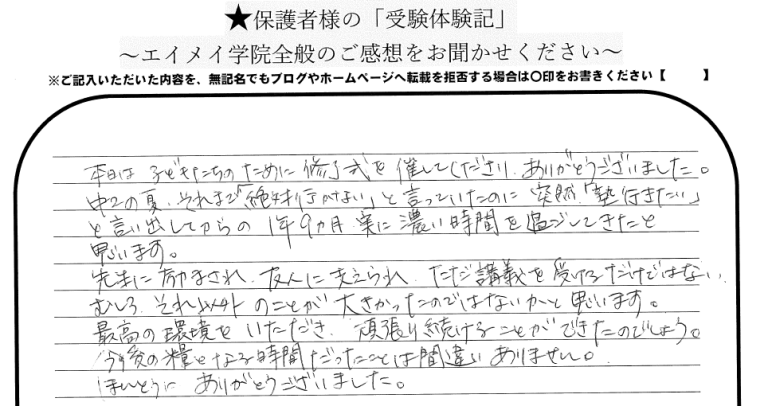 ★保護者様の「受験体験記」
～エイメイ学院全般のご感想をお聞かせください～
※ご記入いただいた内容を、無記名でもブログやホームページへ転載を拒否する場合は〇印をお書きください【　　】
本日は 子どもたちのために 修了式を 催してくださり、ありがとうございました。
中2の夏、それまで「絶対行かない」と言っていたのに 突然「塾行きたい」
と言い出してからの 1年9ヵ月 実に濃い時間を過ごしてきたと
思います。
先生に励まされ、友人に支えられ、ただ講義を受けるだけではない、
むしろ、それ以外のことが 大きかったのではないかと思います。
最高の環境をいただき、頑張り続けることができたのでしょう。
今後の糧となる時間だったことは間違いありません。
ほんとうに ありがとうございました。